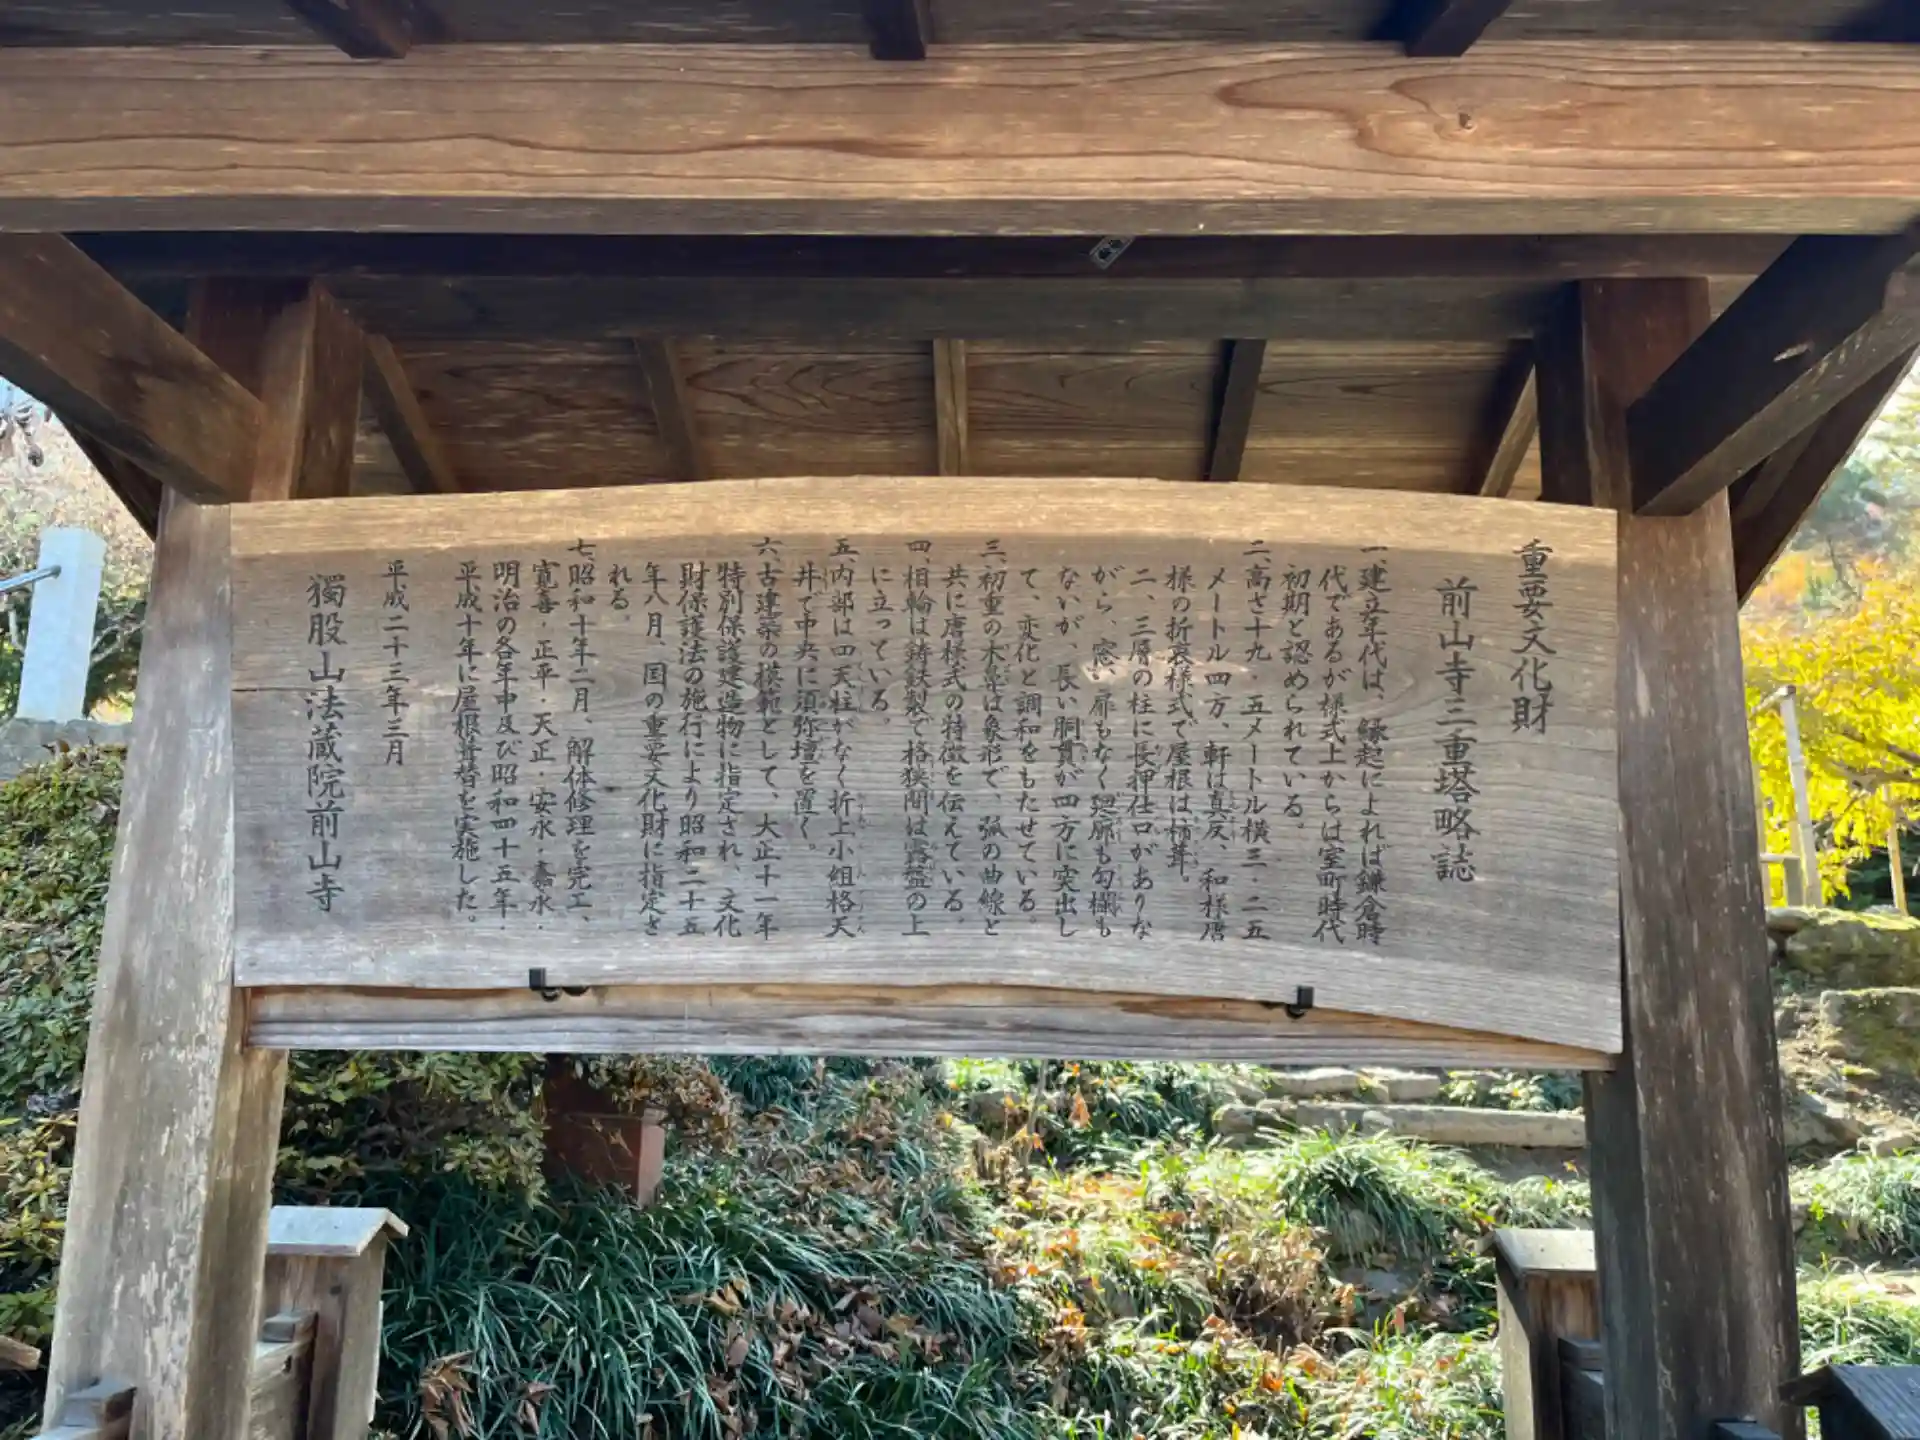 重要文化財
前山寺三重塔略誌
一、建立年代は、縁起によれば鎌倉時
代であるが様式上からは室町時代
初期と認められている。
二、高さ十九・五メートル横三・二五
メートル四方、軒は真反、和様唐
様の折衷様式で屋根は杮葺。
二、三層の柱に長押仕口がありな
がら、窓、扉もなく廻廊も勾欄も
ないが、長い胴貫が四方に突出し
て、変化と調和をもたせている。
三、初重の木鼻は象形で、弧の曲線と
共に唐様式の特徴を伝えている。
四、相輪は鋳鉄製で格狭間は露盤の上
に立っている。
五、内部は四天柱がなく折上小組格天
井で中央に須弥壇を置く。
六、古建築の模範として、大正十一年
特別保護建造物に指定され、文化
財保護法の施行により昭和二十五
年八月、国の重要文化財に指定さ
れる。
七、昭和十年二月、解体修理を完工、
寛喜・正平・天正・安永・嘉永・
明治の各年中及び昭和四十五年・
平成十年に屋根葺替を実施した。
平成二十三年三月
獨股山法蔵院前山寺